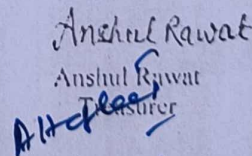 Anshul Rawat
Anshul Rawat
Treasurer